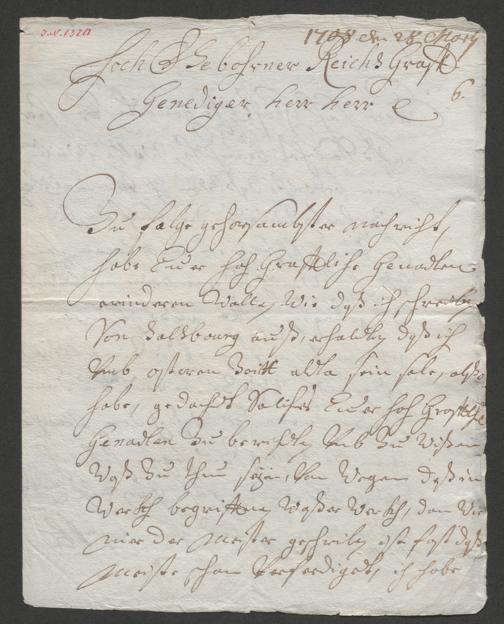 1708 den 28 Marty
Hoch Gebohrner Reichs Graff
Genediger Herr Herr
6.
Zu folge gehorsambster nachricht,
habe Euer hoch Graffliche Genadten
erinderen Wollen, Wie dass ich schreiben
Von Salzbourg auss, erhalten dass ich
Umb osteren Zeitt alda sein sole, also
habe, gedacht Solches Euer hoch Graffliche
Genadten Zu berichten, Umb Zu Wissen
Wass Zu thun seye, Von Wegen dess in
Werckh begriffenen Wasser Werckh, den Wie
mier der Meister geschriben ist fast dass
Meiste schon Verferdiget, ich habe